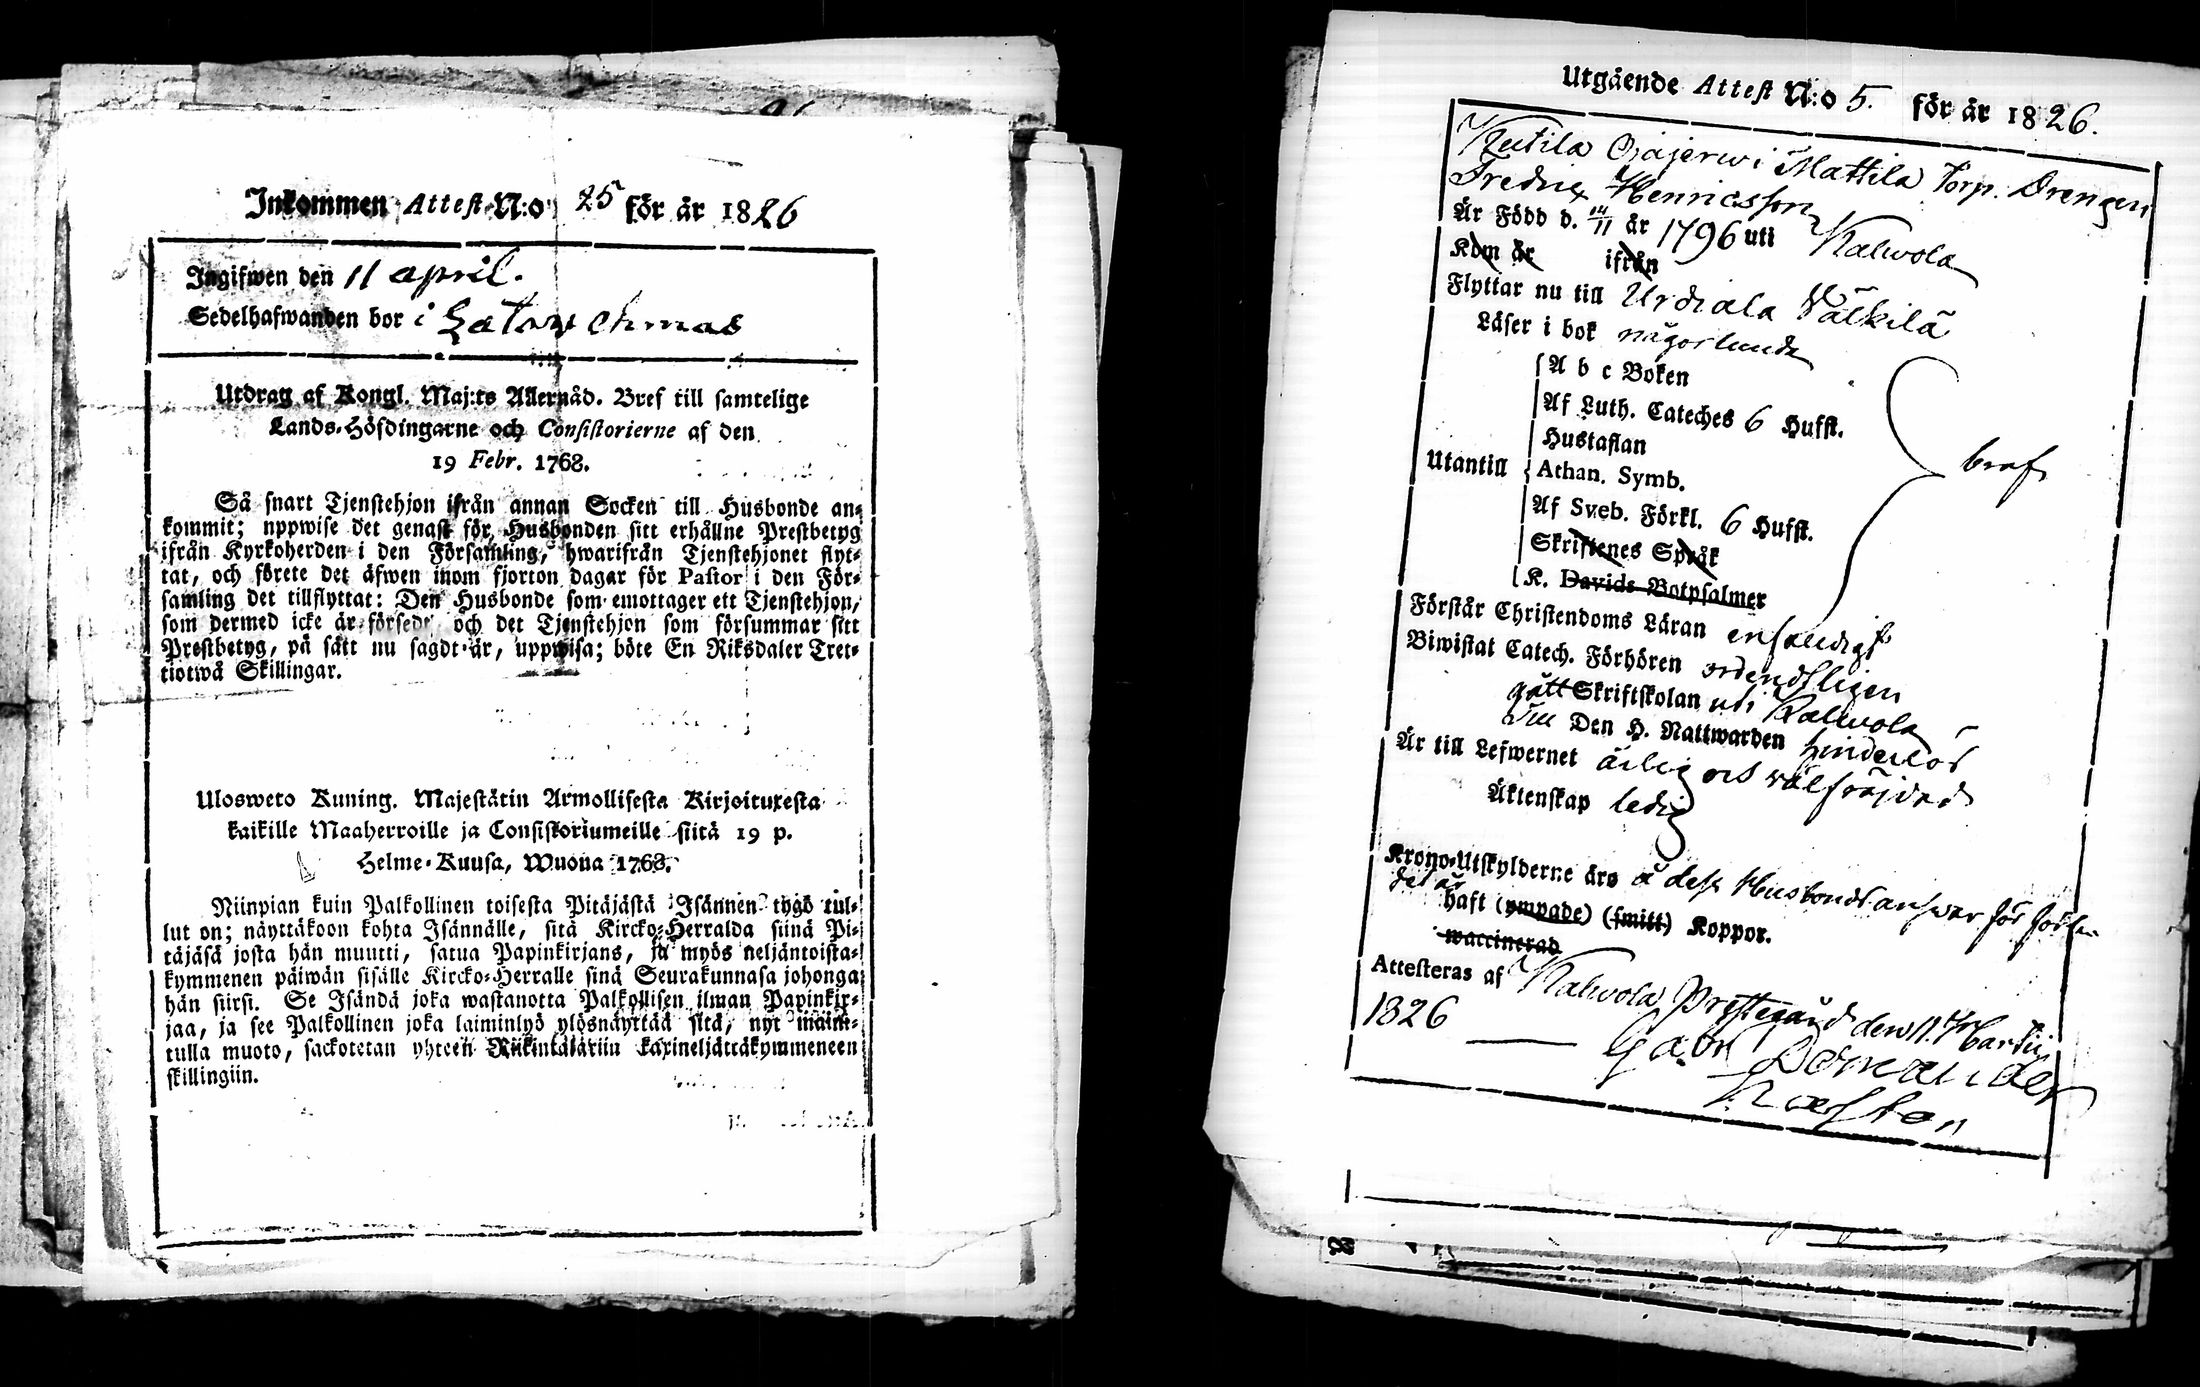 Inkommen Attest N:o 25 för år 1826
Ingifwen den 11 april.
Sedelhafwanden bor i
Utdrag af Kongl. Maj:ts Allernåd. Bref till samtelige
Lands-Höfdingarne och Consistorierne af den
19 Febr. 1768.
Så snart Tjenstehjon ifrån annan Socken till Husbonde an-
kommit; uppwise det genast för Husbonden sitt erhållne Prestbetyg
ifrån Kyrkoherden i den Församling, hwarifrån Tjenstehjonet flyt-
tat, och förete det äfwen inom fjorton dagar för Pastor i den För-
samling det tillflyttat: Den Husbonde som emottager ett Tjenstehjon,
som dermed icke är försedt och det Tjenstehjon som försummar sitt
Prestbetyg, på sätt nu sagdt är, uppwisa; böte En Riksdaler Tret-
tiotwå Skillingar.
Ulosweto Kuning. Majestätin Armollisesta Kirjoituxesta
kaikille Maaherroille ja Consistoriumeille siitä 19 p.
Helme-Kuusa, Wuona 1768.
Niinpian kuin Palkollinen toisesta Pitäjästä Isännen tygö tul-
lut on; näyttäkoon kohta Isännälle, sitä Kircko-Herralda siinä Pi-
täjäsä josta hän muutti, saatua Papinkirjans, ja myös neljäntoista-
kymmenen päiwän sisälle Kircko-Herralle sinä Seurakunnasa johonga
hän siirsi. Se Isändä joka wastanotta Palkollisen ilman Papinkir-
jaa, ja see Palkollinen joka laiminlyö ylösnäyttää sitä, nyt maini-
tulla muoto, sackotetan yhteen Riikintalariin kaxineljättäkymmeneen
skillingiin.
Utgående Attest N:o 5. för år 1826.
Kutila Ojajerwi Mattila Torp. Drengen
Fredric Henricsson
Är Född d. 14/11 år 1796 uti Kalwola
Kom är ifrån
Flyttar nu till Urdiala Välkilä
Läser i bok någorlunda
A b c Boken
Af Luth. Cateches 6 Hufst.
Hustaflan
Utantill Athan. Symb. braf
Af Sveb. Förkl. 6 Hufst.
Skriftenes Språk
K. Davids Botpsalmer
Förstår Christendoms Läran enfaldigt
Biwistat Catech. Förhören ordentligen
gått Skriftskolan uti Kalwola
Till Den H. Nattwarden hinderlös
Är till Lefwernet ärlig och wälfräjdad
Äktenskap ledig
Krono-Utskylderne äro å dess Husbonds answar för
haft (ympade) (smitt) Koppor.
waccinerad
Attesteras af Kalwola Prestegård den 11. Martii
1826
Gabr.